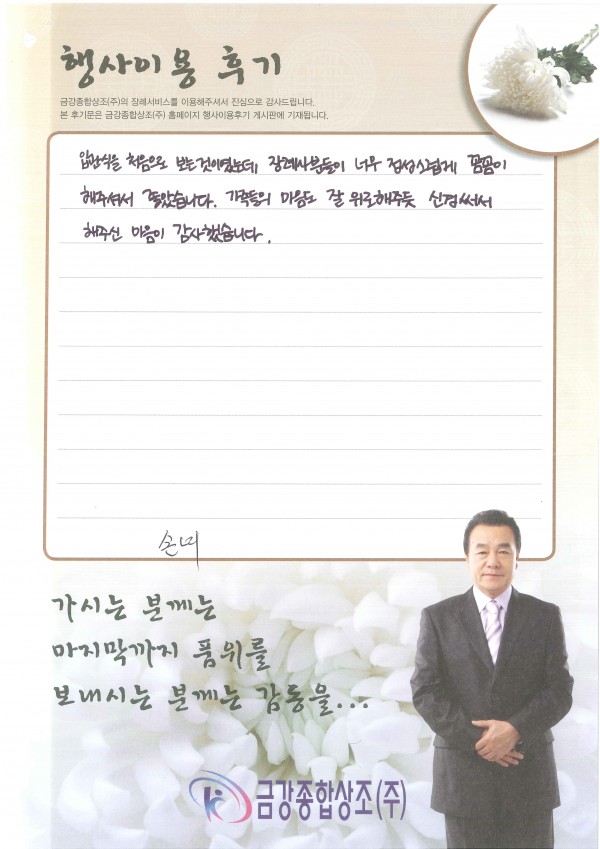 행사이용 후기
금강종합상조(주)의 장례서비스를 이용해주셔서 진심으로 감사드립니다.
본 후기문은 금강종합상조(주) 홈페이지 행사이용후기 게시판에 기재됩니다.
입관식을 처음으로 보는것이였는데, 장례사분들이 너무 정성스럽게 꼼꼼이
해주셔서 좋았습니다. 가족들의 마음도 잘 위로해주듯 신경써서
해주신 마음이 감사했습니다.
손녀
가시는 분께는
마지막까지 품위를
보내시는 분께는 감동을...
금강종합상조(주)